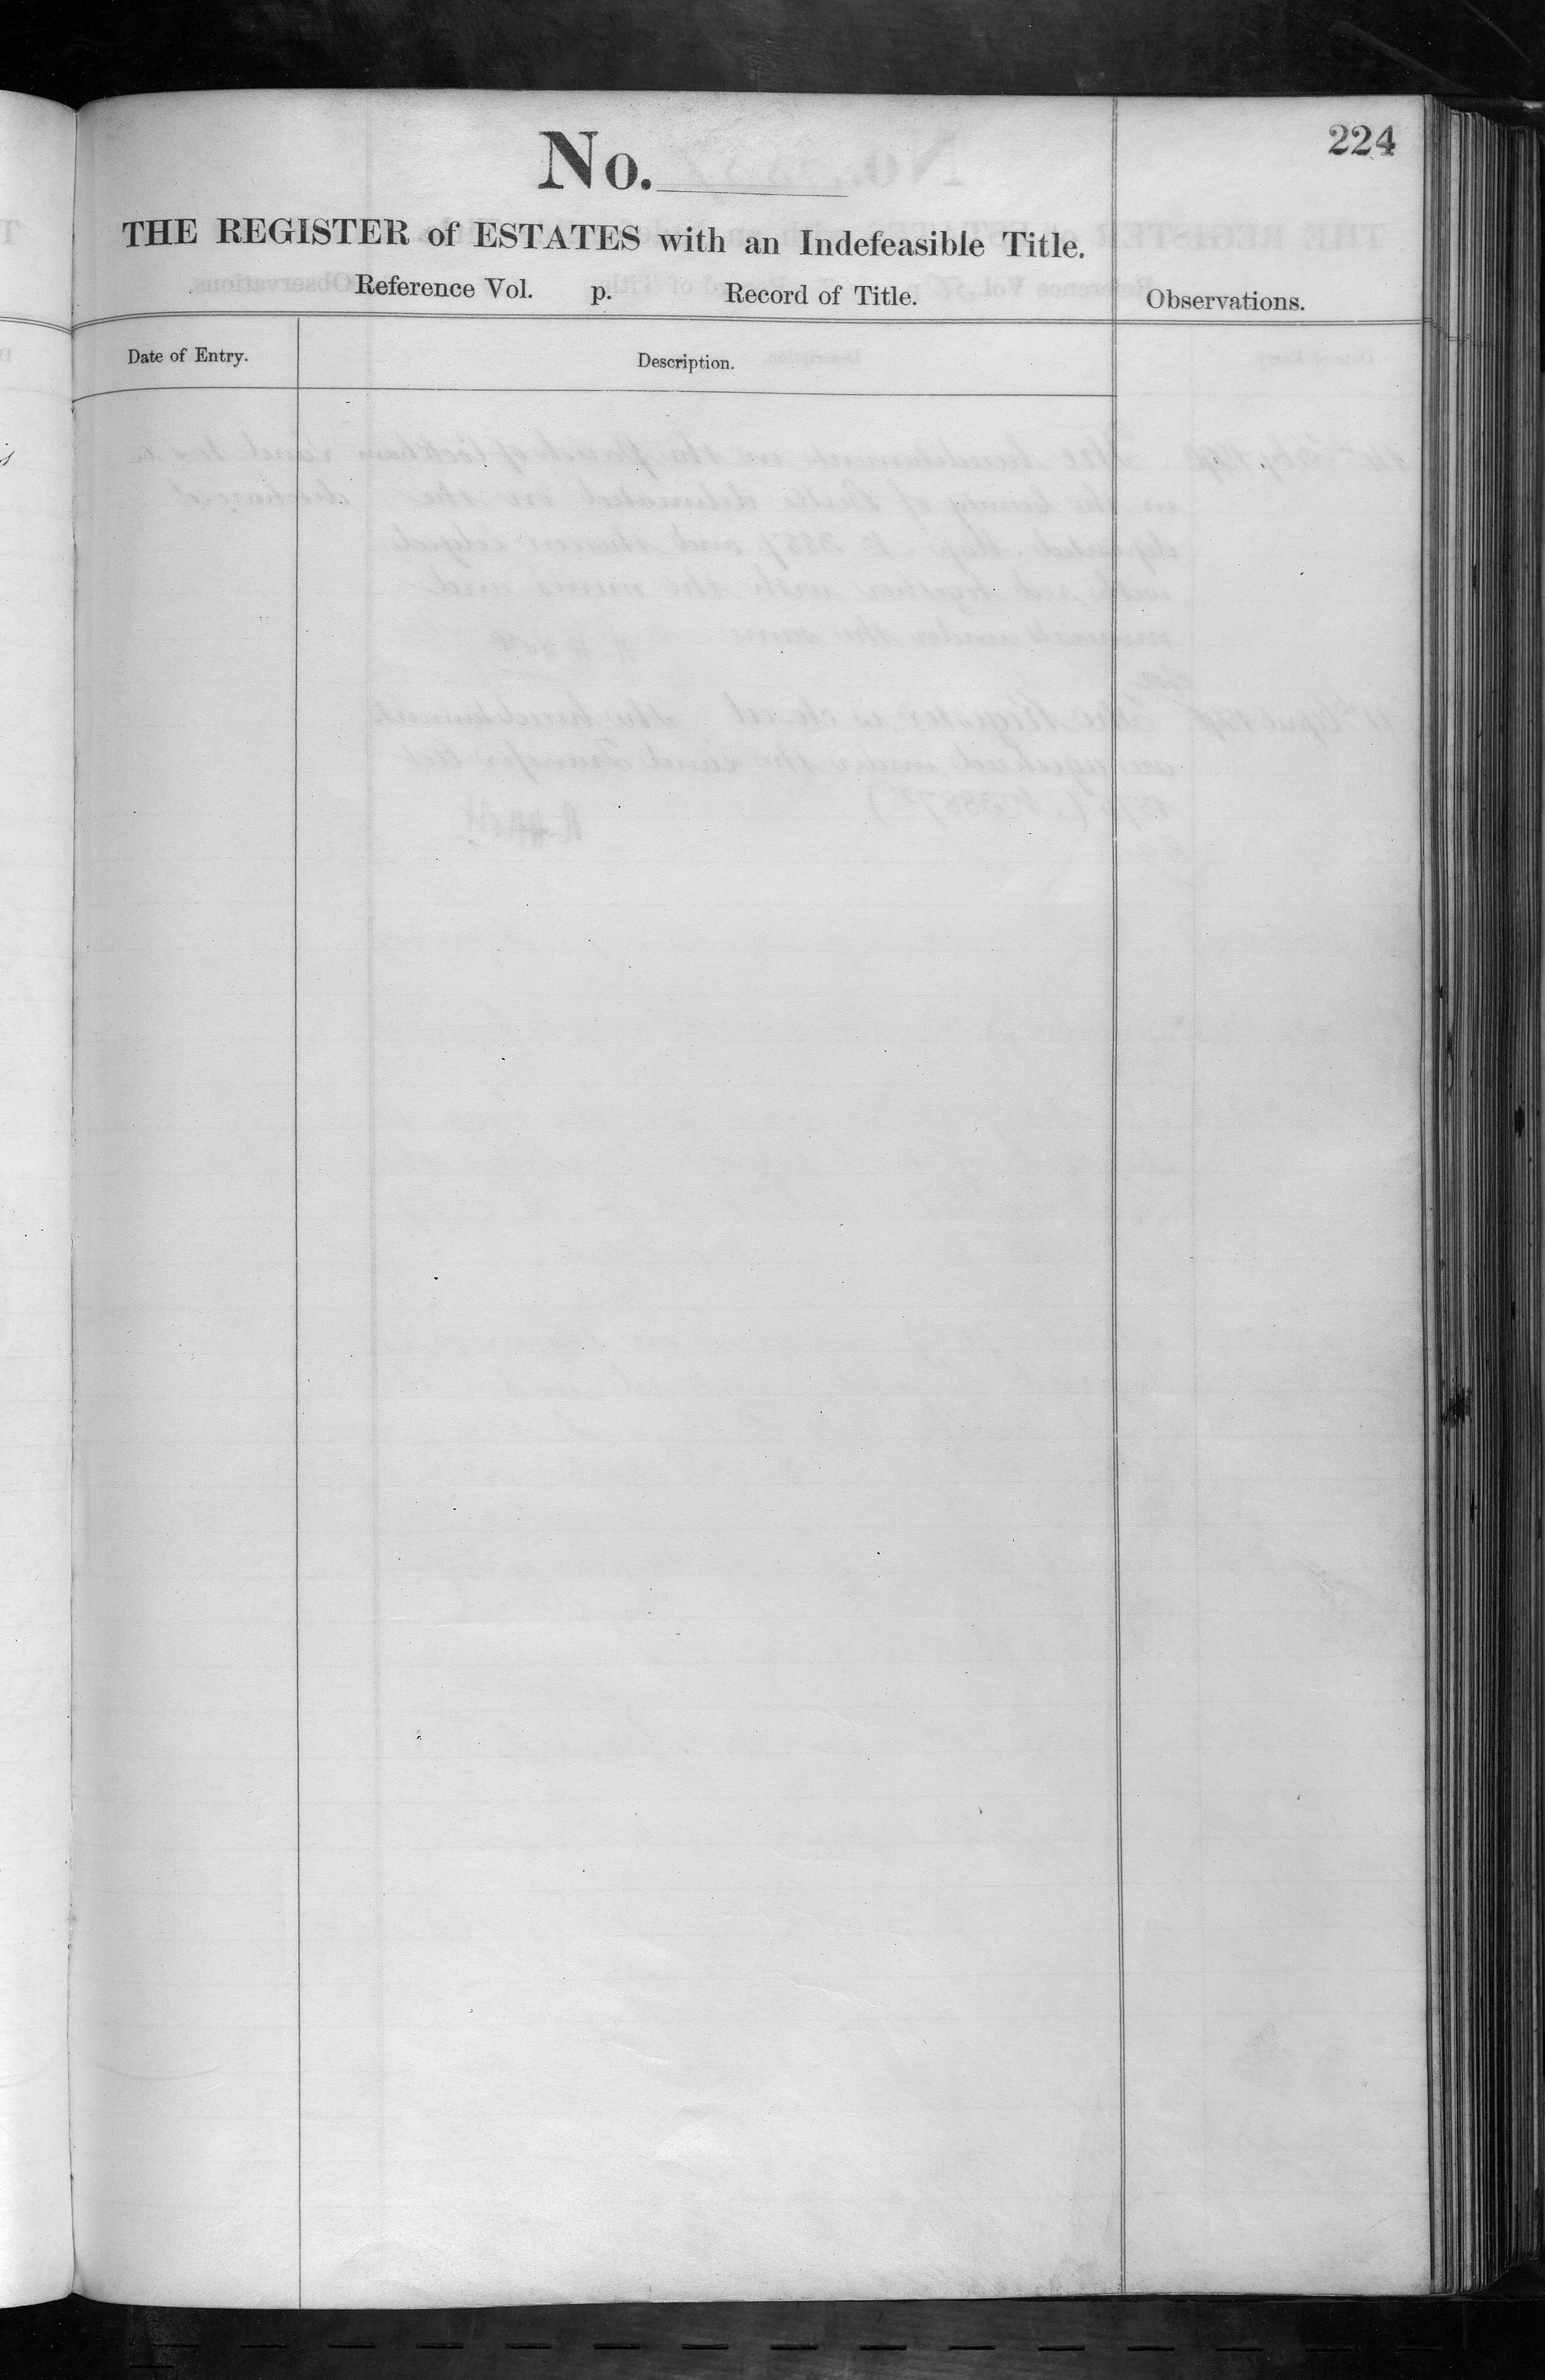 224
No.
THE REGISTER of ESTATES with an Indefeasible Title.
Reference Vol. p. Record of Title.
Observations.
Date of Entry.
Description.